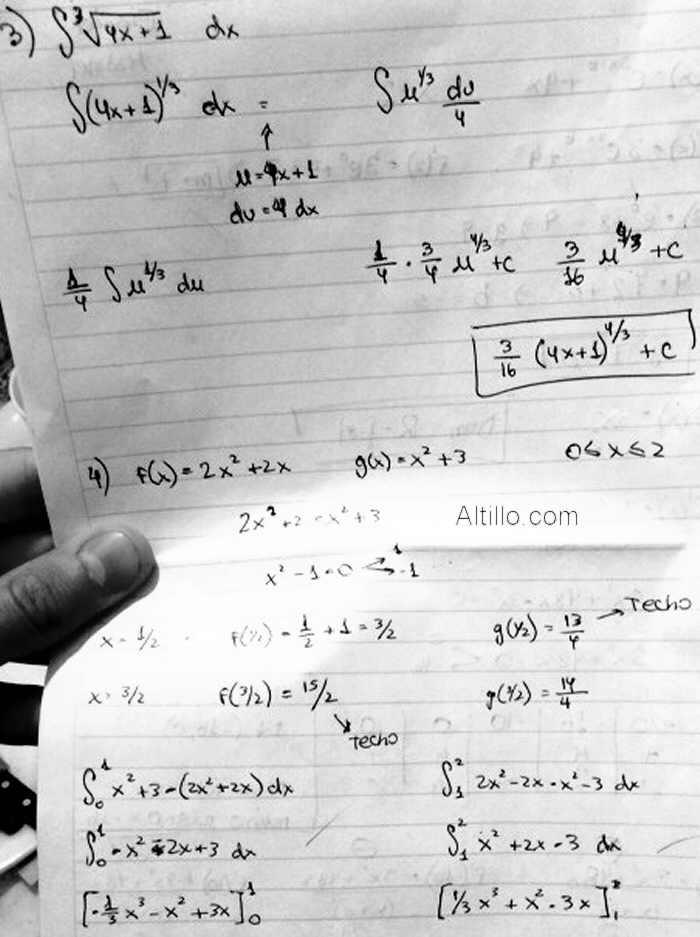 3) ∫ ³√4x+1 dx
∫(4x+1)^1/3 dx = ∫ u^1/3 du/4
↑
u=4x+1
du=4 dx
1/4 ∫ u^1/3 du 1/4 · 3/4 u^4/3 + c 3/16 u^4/3 + c
3/16 (4x+1)^4/3 + c
4) f(x) = 2x² + 2x g(x) = x² + 3 0 ≤ x ≤ 2
2x² + 2 = x² + 3
Altillo.com
x² - 1 = 0 1 -1
x = 1/2 f(1/2) = 1/2 + 1 = 3/2 g(1/2) = 13/4 → TECHO
x = 3/2 f(3/2) = 15/2 g(3/2) =
TECHO
∫₀¹ x² + 3 - (2x² + 2x) dx ∫₁² 2x² - 2x - x² - 3 dx
∫₀¹ -x² - 2x + 3 dx ∫₁² x² + 2x - 3 dx
[-1/3 x³ - x² + 3x]₀¹ [1/3 x³ + x² - 3x]₁²